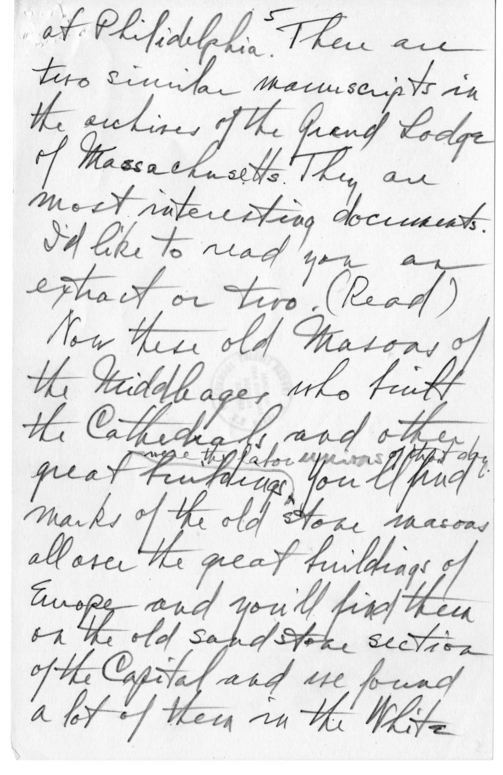 5
at Philidelphia. There are
two similar manuscripts in
the archives of the Grand Lodge
of Massachusetts. They are
most interesting documents.
I'd like to read you an
extract or two. (Read)
Now these old Masons of
the Middleages who built
the Cathedrals, and other
were the labor unions of that day.
great buildings, You'll find
marks of the old stone masons
all over the great buildings of
Europe and you'll find them
on the old sandstone section
of the Capital and we found
a lot of them in the White